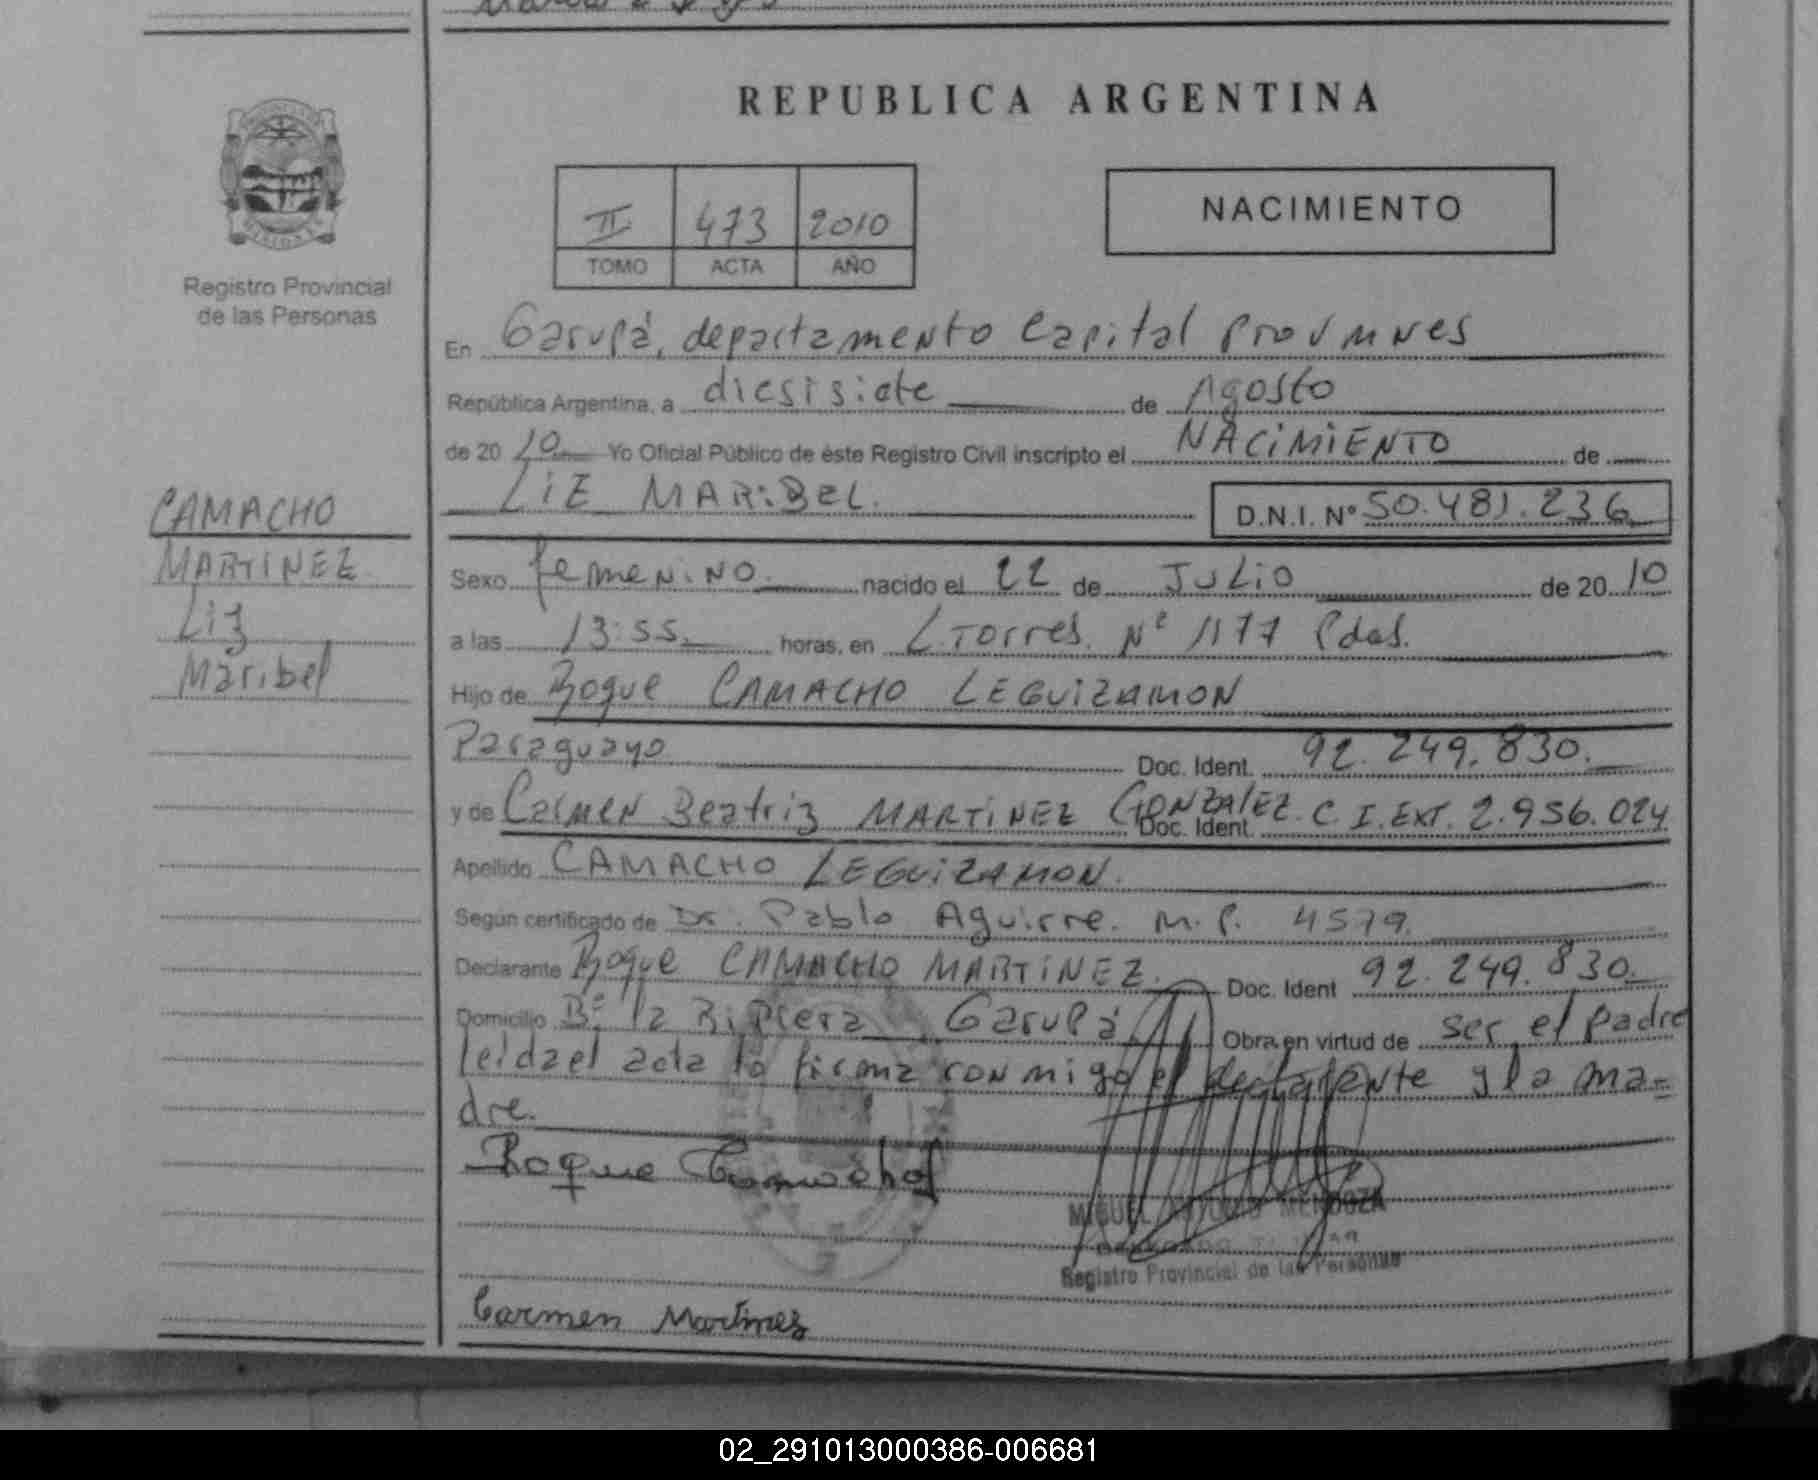 REPUBLICA ARGENTINA
II 473 2010
TOMO ACTA AÑO
NACIMIENTO
Registro Provincial
de las Personas
CAMACHO
MARTINEZ
Liz
Maribel
En Garupá, departamento Capital
República Argentina, a diesisiete de Agosto
de 20 10 Yo Oficial Público de éste Registro Civil inscripto el NACIMIENTO de
LiZ MARIBEL. D.N.I. Nº 50.481.236
Sexo femenino. nacido el 22 de Julio de 20 10
a las 13:55. horas, en L. Torres. Nº 1177 Pdas.
Hijo de Roque CAMACHO LEGUIZAMON
Paraguayo Doc. Ident. 92.249.830.
y de Carmen Beatriz MARTINEZ GONZALEZ. Doc. Ident. C.I. EXT. 2.956.024
Apellido CAMACHO LEGUIZAMON.
Según certificado de Dr. Pablo Aguirre. M.P. 4579.
Declarante Roque CAMACHO MARTINEZ. Doc. Ident 92.249.830.
Domicilio Bº la Garupá Obra en virtud de ser el padre
leida el acta la firma conmigo el declarante y la ma-
dre.
Roque Camacho
MIGUEL ANTONIO MENDOZA
Registro Provincial de las Personas
Carmen Martinez
02_291013000386-006681